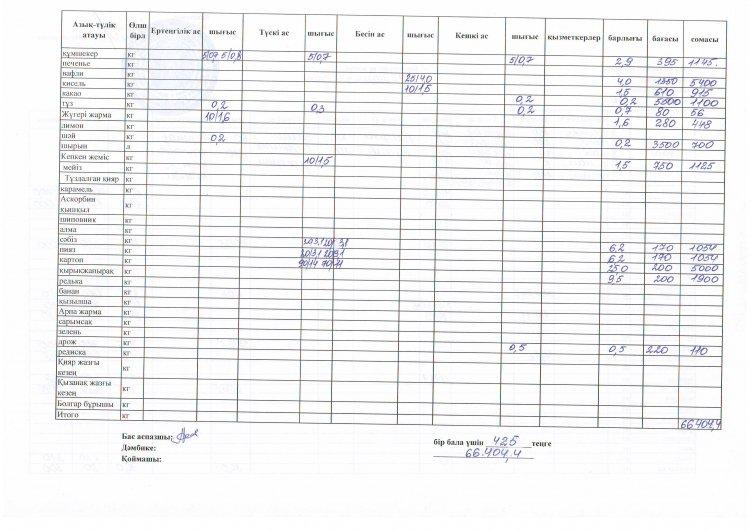 Азық-түлік атауы Өлш бірл Ертеңгілік ас шығыс Түскі ас шығыс Бесін ас шығыс Кешкі ас шығыс қызметкерлер барлығы бағасы сомасы
құмшекер кг 5/0,7 5/0,7 5/0,7 2,9 395 1145.
печенье кг
вафли кг 25/4,0 4,0 1350 5400
кисель кг 10/1,5 1,5 610 915
какао кг 0,2 0,2 0,2 5000 1100
тұз кг 0,2 0,3 0,2 0,7 80 56
Жүгері жарма кг 10/1,6 1,6 280 448
лимон кг
шәй кг 0,2 0,2 3500 700
шырын л
Кепкен жеміс кг 10/1,5 1,5 750 1125
мейіз кг
Тұздалған қияр кг
карамель кг
Аскорбин қышқыл кг
шиповник кг
алма кг
сәбіз кг 6,2 170 1054
пияз кг 6,2 170 1054
картоп кг 25,0 200 5000
қырыққапырақ кг 9,5 200 1900
редька кг
банан кг
қызылша кг
Арпа жарма кг
сарымсақ кг
зелень кг
дрож кг 0,5 0,5 220 110
редиска кг
Қияр жазғы кезең кг
Қызанақ жазғы кезең кг
Болгар бұрышы кг
Итого кг 66.404,4
Бас аспазшы:
бір бала үшін 425 теңге
Дәмбике:
66.404,4
Қоймашы: